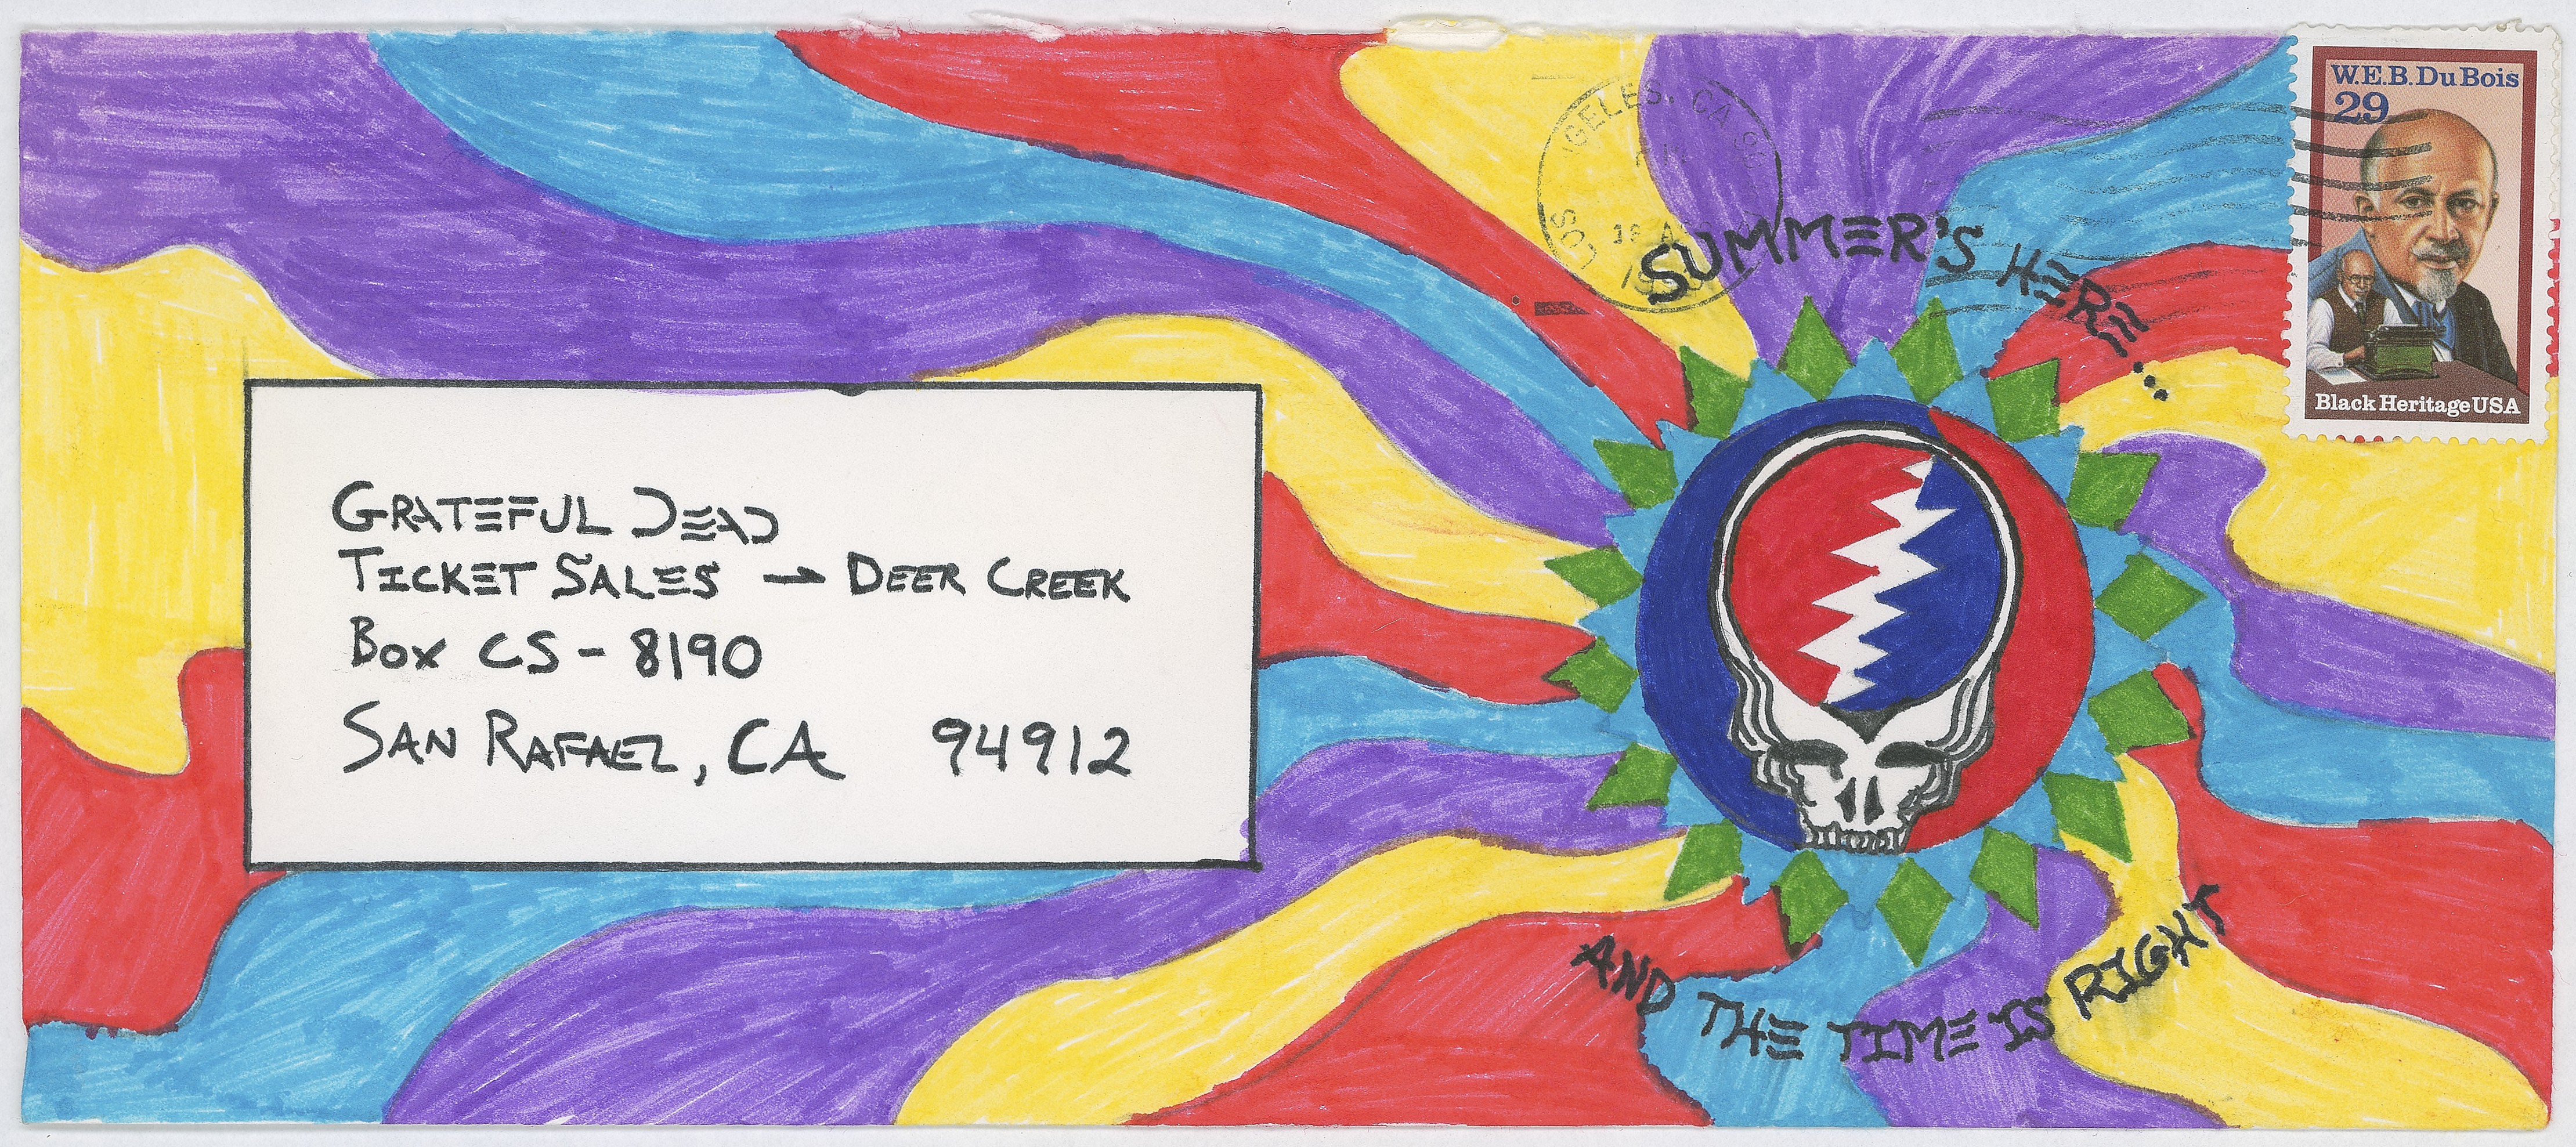 W.E.B. Du Bois
29
Black Heritage USA
GELES, CA
LOS
18 A
SUMMER'S HERE...
GRATEFUL DEAD
TICKET SALES → DEER CREEK
BOX CS - 8190
SAN RAFAEL, CA 94912
AND THE TIME IS RIGHT